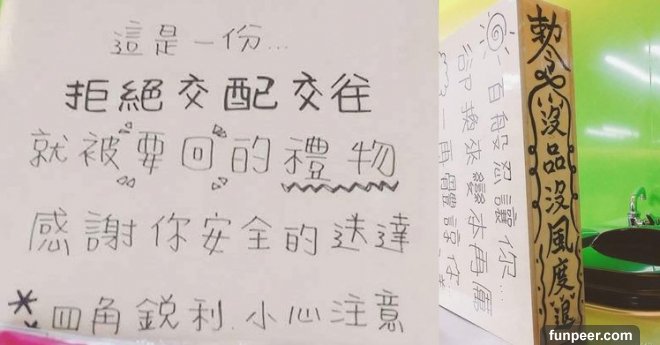 這是一份...
拒絕交配交往
就被要回的禮物
感謝你安全的送達
*四角銳利.小心注意
勅令沒品沒風度退
百般忍讓你...
卻換來變本再厲
一再體諒你
funpeer.com